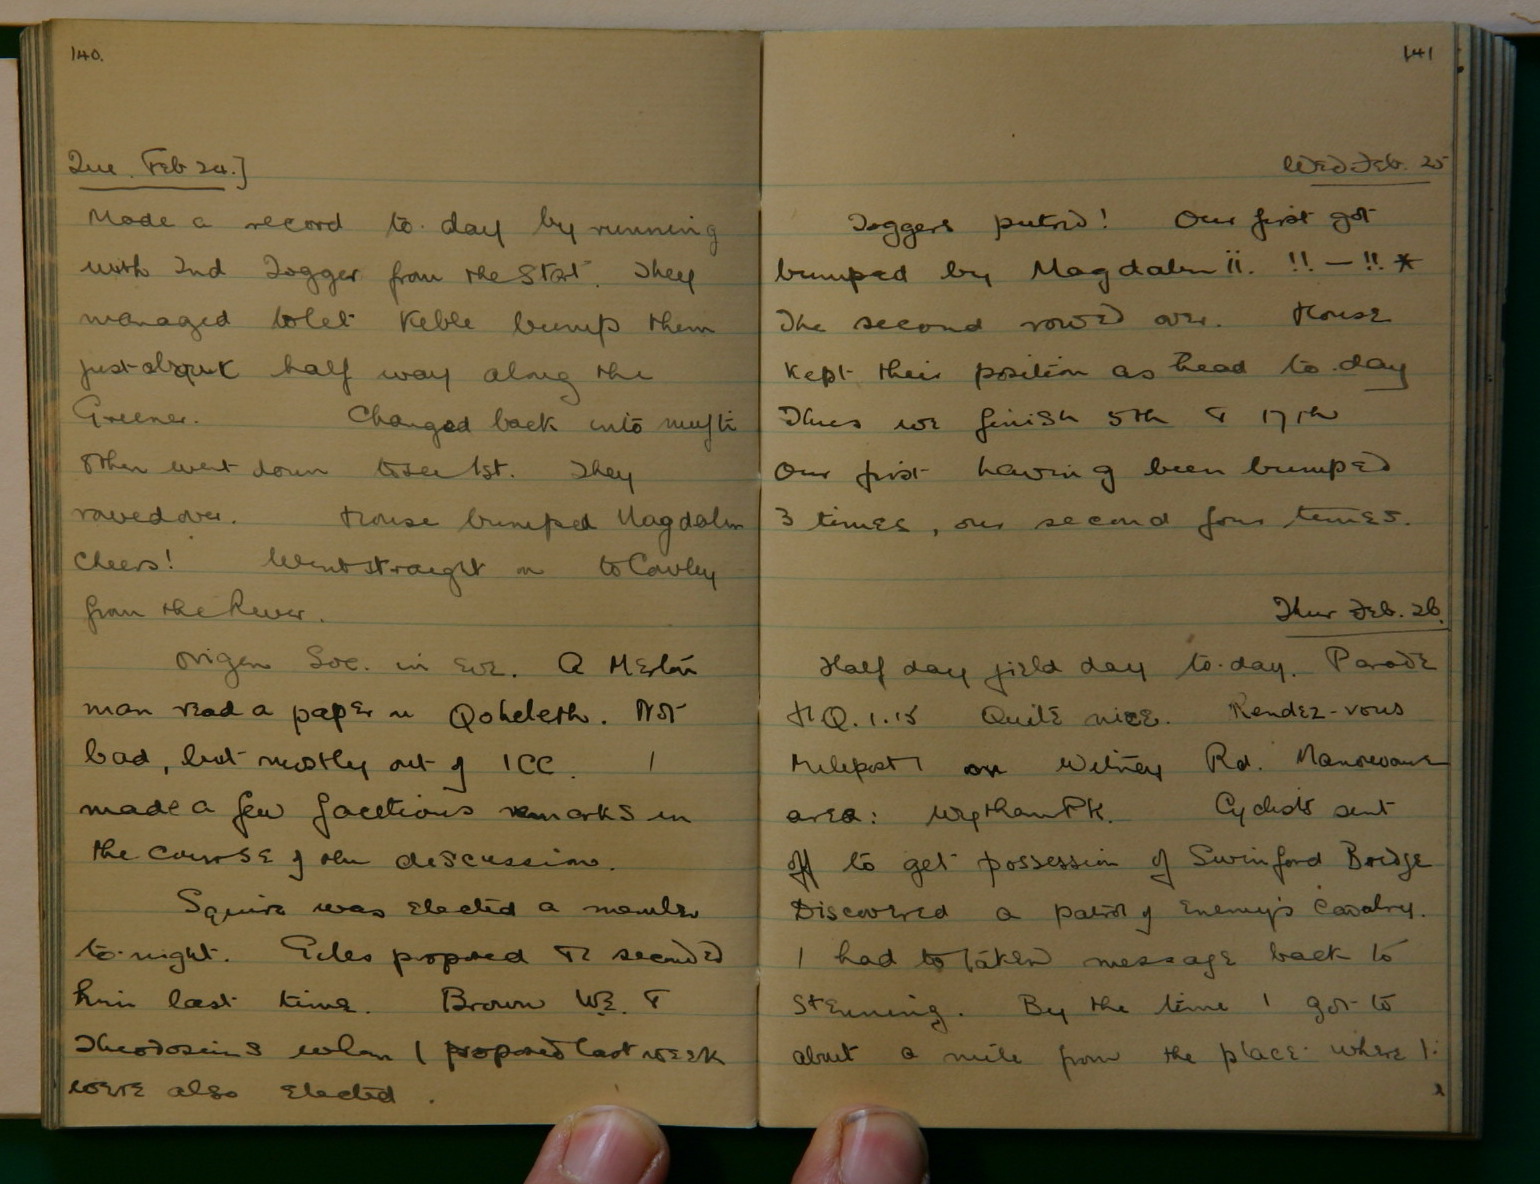 140.
Tue. Feb 24.]
Made a record to-day by running
with 2nd Togger from the start. They
managed to let Keble bump them
just about half way along the
Greener. Changed back into mufti
& then went down to see 1st. They
rowed over. House bumped Magdalen
Cheers! Went straight on to Cowley
from the River.
Origen Soc. in Eve. A Merton
man read a paper on Qoheleth. Not
bad, but mostly out of ICC. I
made a few facetious remarks in
the course of the discussion.
Squire was elected a member
to-night. Giles proposed & I seconded
him last time. Brown W.E. &
Theodosius whom I proposed last week
were also elected.
141
Wed Feb. 25
Toggers putrid! Our first got
bumped by Magdalen ii. !! — !! *
The second rowed over. House
kept their position as head to-day
Thus we finish 5th & 17th
Our first having been bumped
3 times, our second four times.
Thur Feb. 26.
Half day field day to-day. Parade
HQ. 1.15 Quite nice. Rendez-vous
Milepost 1 on Witney Rd. Manoeuvre
area: Wytham PK. Cyclists sent
off to get possession of Swinford Bridge
Discovered a patrol of Enemy's Cavalry.
I had to take message back to
Stenning. By the time I got to
about a mile from the place where I